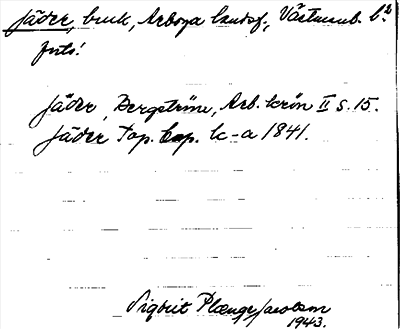 Jäder, bruk, Arboga landsf., Västmanl. l:n
Jäder, Bergström, Arb. krön II s. 15.
Jäder Top. Cop. k-a 1841.
Sigbrit Plænge Jacobson
1943.